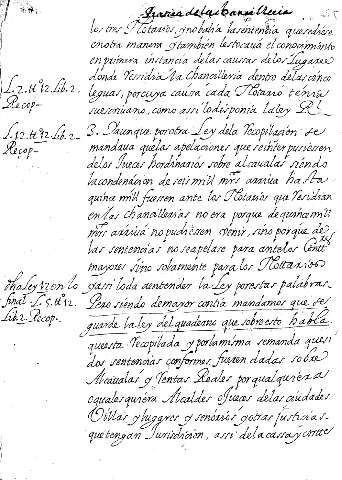 Practica de la Chansilleria
los tres Notarios, y no havia la sentencia que se diese
en otra manera, y tambien les tocava el conocimiento
en primera instancia de las causas de los Lugares
donde residia la Chancilleria dentro de las cinco
leguas, por cuya causa cada Notario tenia
su escrivano, como assi lo disponia la ley Rl.
L. 2. tt. 12. Lib. 2.
Recop-
L. 12. tt. 12. Lib. 2.
Recop-
3. Y aunque por otra Ley de la recopilacion se
mandava que las apelaciones que se interpusiesen
de los Jueces hordinarios sobre alcavalas siendo
la condenacion de seis mill mrs. arriva hasta
quince mill fuesen ante los Notarios que residian
en las chansillerias no era porque de quince mill
mrs. arriva no pudiesen venir, sino porque de
las sentencias no se apelase para ante los
mayores sino solamente para los Nottarios
y assi lo da a entender la Ley por estas palabras.
dha ley 12 en lo
final L. 5. tt. 12.
Lib. 2. Recop-
Pero siendo de mayor contia mandamos que se
guarde la ley del quaderno que sobre esto habla
que esta recopilada y por la misma se manda que si
dos sentencias conformes fueren dadas sobre
Alcavalas y Ventas Reales por qualquiera
o qualesquiera Alcaldes o Jueces de las ciudades
Villas y lugares y señorios y otras justicias
que tengan Jurisdicion, assi de la cassa y corte